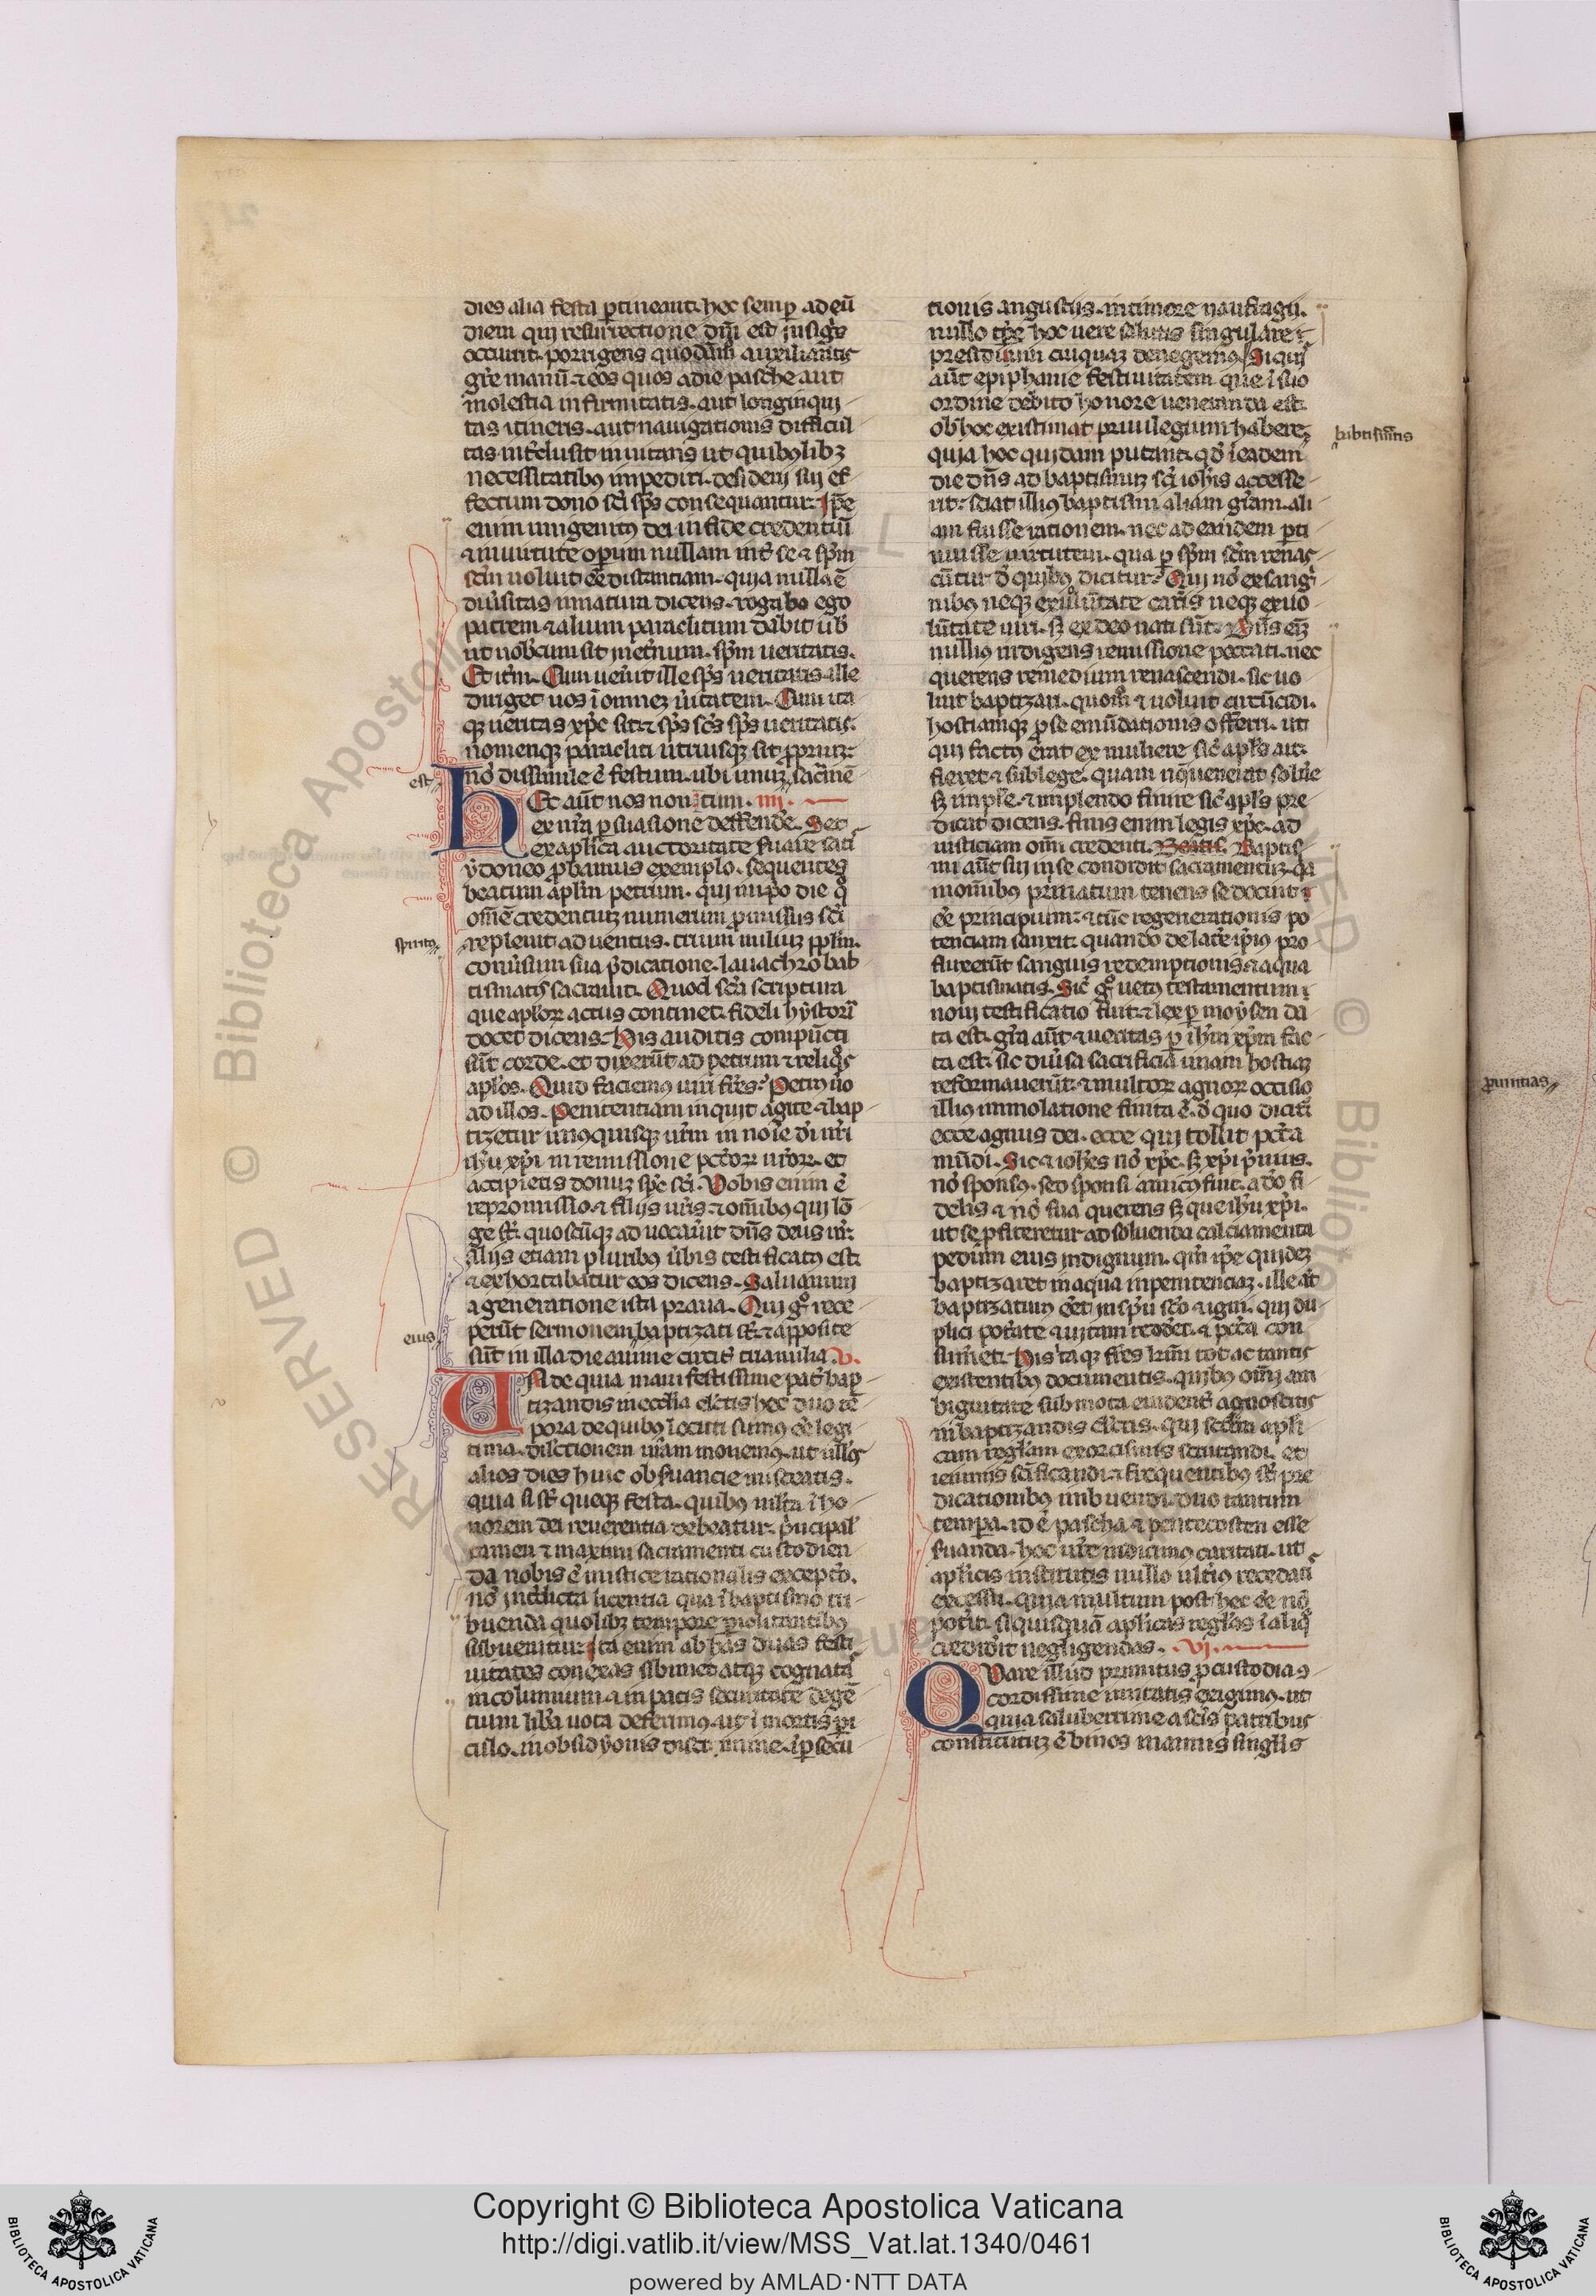 dies alia festa ꝑtineant. hoc semꝑ ad eū
diem qui resurrectione dn̄i est insigīs
occurrit. porrigens quodāmō auxiliantis
gr̄e manū ⁊ eos quos a die pasche aut
molestia infirmitatis. aut longinqui-
tas itineris. aut nauigationis difficul-
tas int̄clusit
necessitatibꝰ impediti. desiderij sui ef-
fectum dono sc̄i sp̄s consequantur. Ip̄e
enim unigenitꝰ dei in fide credentiū
⁊ in uirtute oꝑum nullam int̄ se ⁊ sp̄m
sc̄m uoluit eē distantiam. quia nulla ē
diu̓sitas in natura dicens. rogabo ego
patrem ⁊ alium paraclitum dabit ub̄
ut uobcum sit in et̓num. sp̄m ueritatis.
Et itm̄. Cum uen̓it ille sp̄s ueritatis ille
diriget uos ī omnez u̓itatem. Cum ita
qꝫ ueritas xp̄c sit ⁊ sp̄s sc̄s sp̄s ueritatis.
nomenqꝫ paracliti utriusqꝫ sit ꝓpriuꝫ.
nō dissimile ē festum. ubi unuꝫ sacm̄ē
est
Et aūt nos non tum. iiij.
ex nr̄a ꝑsuasione deffendē. Set
ex aplīca auctoritate ẜuare sati
ydoneo ꝓbamus exemplo. sequentes
beatum aplm̄ petrum. qui in ip̄o die q̊
omē̄ credentiuꝫ numerum ꝓmissus sc̄i
spiritꝰ
repleuit aduentus. trium miliuꝫ ppl̄m.
conu̓sum sua p̄dicatione. lauachro bab-
tismatis sacrauit. Quod sc̄a scriptura
que aplorꝝ actus continet. fideli hystoria
docet dicens. His auditis compūcti
sūt corde. et dixerūt ad petrum ⁊ reliq̊s
aplos. Quid faciemus uiri fr̄es? Petrꝰ ũo
ad illos. Penitentiam inquit agite ⁊ bap-
tizetur unꝰquisqꝫ ur̄m in noīe dn̄i nr̄i
ihū xp̄i in remissione pctōrꝝ ur̄orꝝ. et
accipietis donuꝫ sp̄c sc̄i. Vobis enim ē
repromissio. ⁊ filijs ur̄is ⁊ omībꝰ qui lō-
ge sūt. quoscūqꝫ aduocau̓it dn̄s deus nr̄.
Alijs etiam pluribꝰ u̓bis testificatꝰ est.
⁊ exhortabatur eos dicens. Saluamini
a generatione ista praua. Qui gͦ rece-
perūt sermonem baptizati sūt. ⁊ apposite
eius
sūt in illa die anime circit̓ tria milia. v.
de quia manifestissime pat̓ bap-
tizandis in ecclīa elc̄tis hec duo tē-
pora de quibꝰ locuti sumꝰ eē legi-
tima. dilc̄tionem ur̄am monemꝰ. ut null̓os
alios dies huic obẜuancie misceatis.
quia ⁊ si sūt queqꝫ festa. quibꝰ multa ī ho-
norem dei reuerentia debeatur. p̄ncipal̓
tamen ⁊ maximi sacramenti custodien-
da nobis ē mistice rationalis exceptō.
nō int̓dicta licentia qua ī baptismo tri-
buenda quolibꝫ tempore ꝑiclitantibꝰ
subuenitur. Ita enim ab has duas festi-
uitates conexas sibimet atqꝫ cognatas
incolumium ⁊ in pacis securitate degē-
tium lib̓a uota deferimꝰ. ut ī mortis ꝑi-
culo. in obsidyonis
tionis angustijs. in timore naufragij.
nullo tp̄e hoc uere salutis singulare
presidium cuiquaꝫ denegemꝰ. Si quis
aūt epiphanie festiuitatem que ī suo
ordine debito honore ueneranda est.
ob hoc existimat priuilegium habere.
quia hoc quidam putant. qd̄ ī eadem
die dn̄s ad baptismuꝫ sc̄i ioh̄is accesse-
rit. sciat illiꝰ baptismi aliam gr̄am. ali-
am fuisse rationem. nec ad eandem ꝑti-
nuisse uirtutem. qua ꝑ sp̄m sc̄m renas-
cūtur d̄ quibꝰ dicitur. Qui nō ex sangⁱ-
nibꝰ neqꝫ ex uolūtate carn̓is neqꝫ ex uo-
lūtate uiri. sꝫ ex deo nati sūt. Dn̄s eꝫ
nulliꝰ indigens remissione peccati. nec
querens remedium renascendi. sic uo-
luit baptizari. quomō ⁊ uoluit circūcidi.
hostiamqꝫ ꝓ se emūdationis offerri. ut
qui factꝰ erat ex muliere sic̄ apls̄ ait.
fieret ⁊ sub lege. quam nō uenerat solu̓e
sꝫ implē. ⁊ implendo finire sic̄ apls̄ pre-
dicat dicens. finis enim legis xp̄c. ad
iusticiam omī credenti. Baptis-
mi aūt sui in se condidit sacramentuꝫ. qa
in omībꝰ primatum tenens se docuit
eē principium. ⁊ tūc regenerationis po-
tenciam sanxit. quando de lat̓e ip̄iꝰ pro-
fluxerūt sanguis redemptionis ⁊ aqua
baptismatis. Sic̄ gͦ uetꝰ testamentum
noui testificatio fuit. ⁊ lex ꝑ moysen da-
ta est. gr̄a aūt ⁊ ueritas ꝑ ih̄m xp̄m fac-
ta est. sic diu̓sa sacrificia unam hostiaꝫ
reformauerūt. ⁊ multorꝝ agnorꝝ occisio
illiꝰ immolatione finita ē. d̄ quo dicitr̄
ecce agnus dei. ecce qui tollit pcc̄a
mūdi. Sic ⁊ ioh̄es nō xp̄c. sꝫ xp̄i p̄uius.
nō sponsꝰ. sed sponsi amicꝰ fuit. adō fi-
delis ⁊ nō sua querens sꝫ que ihū xp̄i.
ut se ꝓfiteretur ad soluenda calciamenta
pedum eius indignum. qm̄ ip̄e quideꝫ
baptizaret in aqua in penitenciaꝫ. ille aūt
baptizaturꝰ eēt in sp̄u sc̄o ⁊ igni. qui du-
plici potātate ⁊ uitam redderet. ⁊ pcc̄a con-
sumeret. His itaqꝫ fr̄es kīmi tot ac tantis
existentibꝰ documentis. quibꝰ omī am-
biguitate submota euident̓ agnoscitis
in baptizandis elc̄tis. qui sc̄dm apli-
cam regl̄am exorcismis scrutandi. et
ieiuniis sc̄ificandi ⁊ frequentibꝰ sūt pre-
dicationibꝰ imbuendi. duo tantum
tempora. id ē pascha ⁊ pentecosten esse
ẜuanda. hoc ur̄e indicimꝰ caritati. ut
aplīcis institutis nullo ult̓iꝰ recedatis
excessu. quia inultum post hec eē nō
pot̓it. si quisquā aplīcas regl̄as ī aliq̊
crediderit negligendas. vi.
Quare illud primitus ꝓ custodia 9-
cordissime unitatis exigimꝰ. ut
quia saluberrime a sc̄is patribus
constitutuꝫ ē binos in annis singl̄is
ꝓuintias
Copyright © Biblioteca Apostolica Vaticana
http://digi.vatlib.it/view/MSS_Vat.lat.1340/0461
powered by AMLAD·NTT DATA
BIBLIOTECA APOSTOLICA VATICANA
BIBLIOTECA APOSTOLICA VATICANA